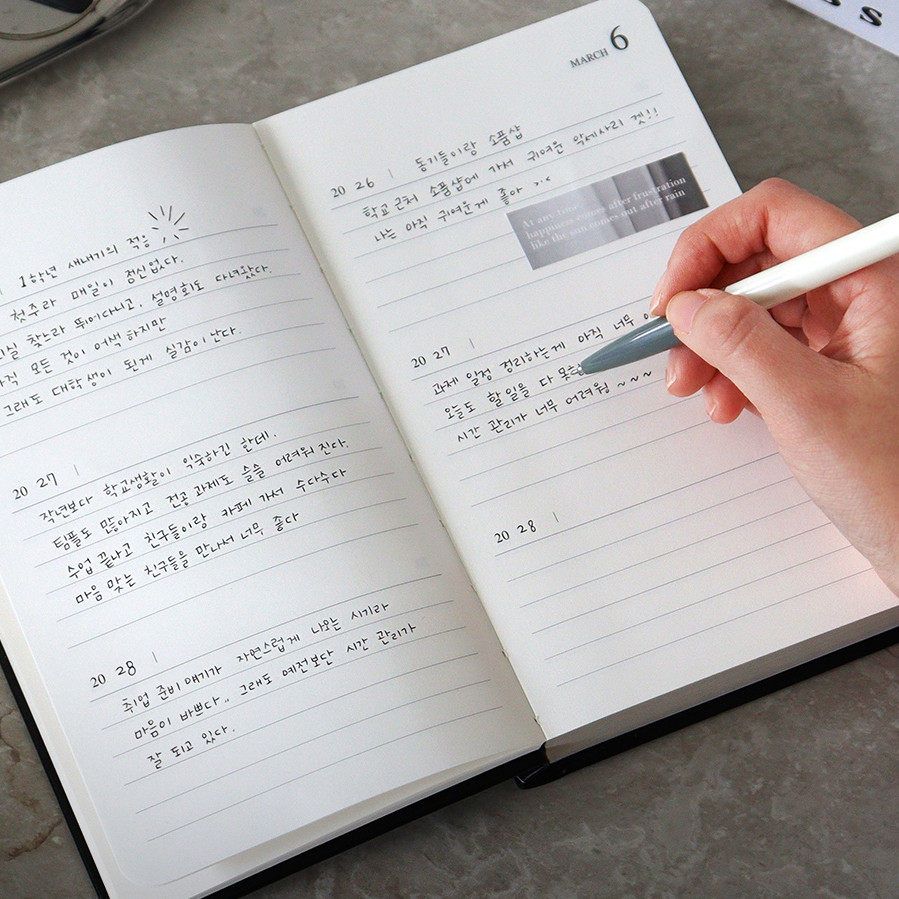 1학년 새내기의 적응
첫주라 매일이 정신없다.
찾느라 뛰어다니고, 설명회도 다녀왔다.
모든 것이 어색 하지만
그래도 대학생이 된게 실감이 난다.
20 27
작년보다 학교생활이 익숙하긴 한데.
팀플도 많아지고 전공 과제도 슬슬 어려워 진다.
수업 끝나고 친구들이랑 카페 가서 수다수다
마음 맞는 친구들을 만나서 너무 좋다
20 28
취업 준비 얘기가 자연스럽게 나오는 시기라
마음이 바쁘다.. 그래도 예전보단 시간 관리가
잘 되고 있다.
MARCH 6
20 26 동기들이랑 소품샵
학교 근처 소품샵에 가서 귀여운 악세사리 겟!!
나는 아직 귀여운게 좋아 >.<
At any time
happiness comes after frustration
like the sun comes out after rain
20 27
과제 일정 정리하는게 아직 너무
오늘도 할 일을 다
시간 관리가 너무 어려웡 ~ ~ ~
20 28